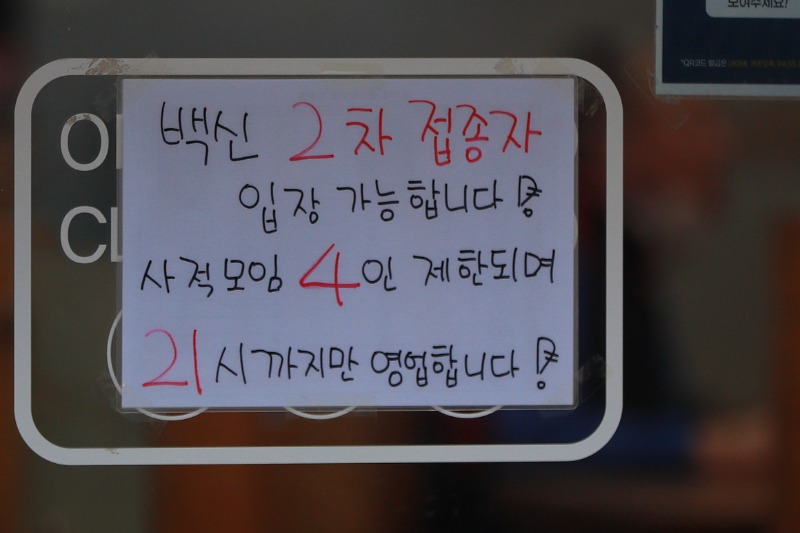 보여주세요!
*QR코드 발급은
O
CL
백신 2차 접종자
입장 가능합니다!
사적모임 4인 제한되며
21시까지만 영업합니다!